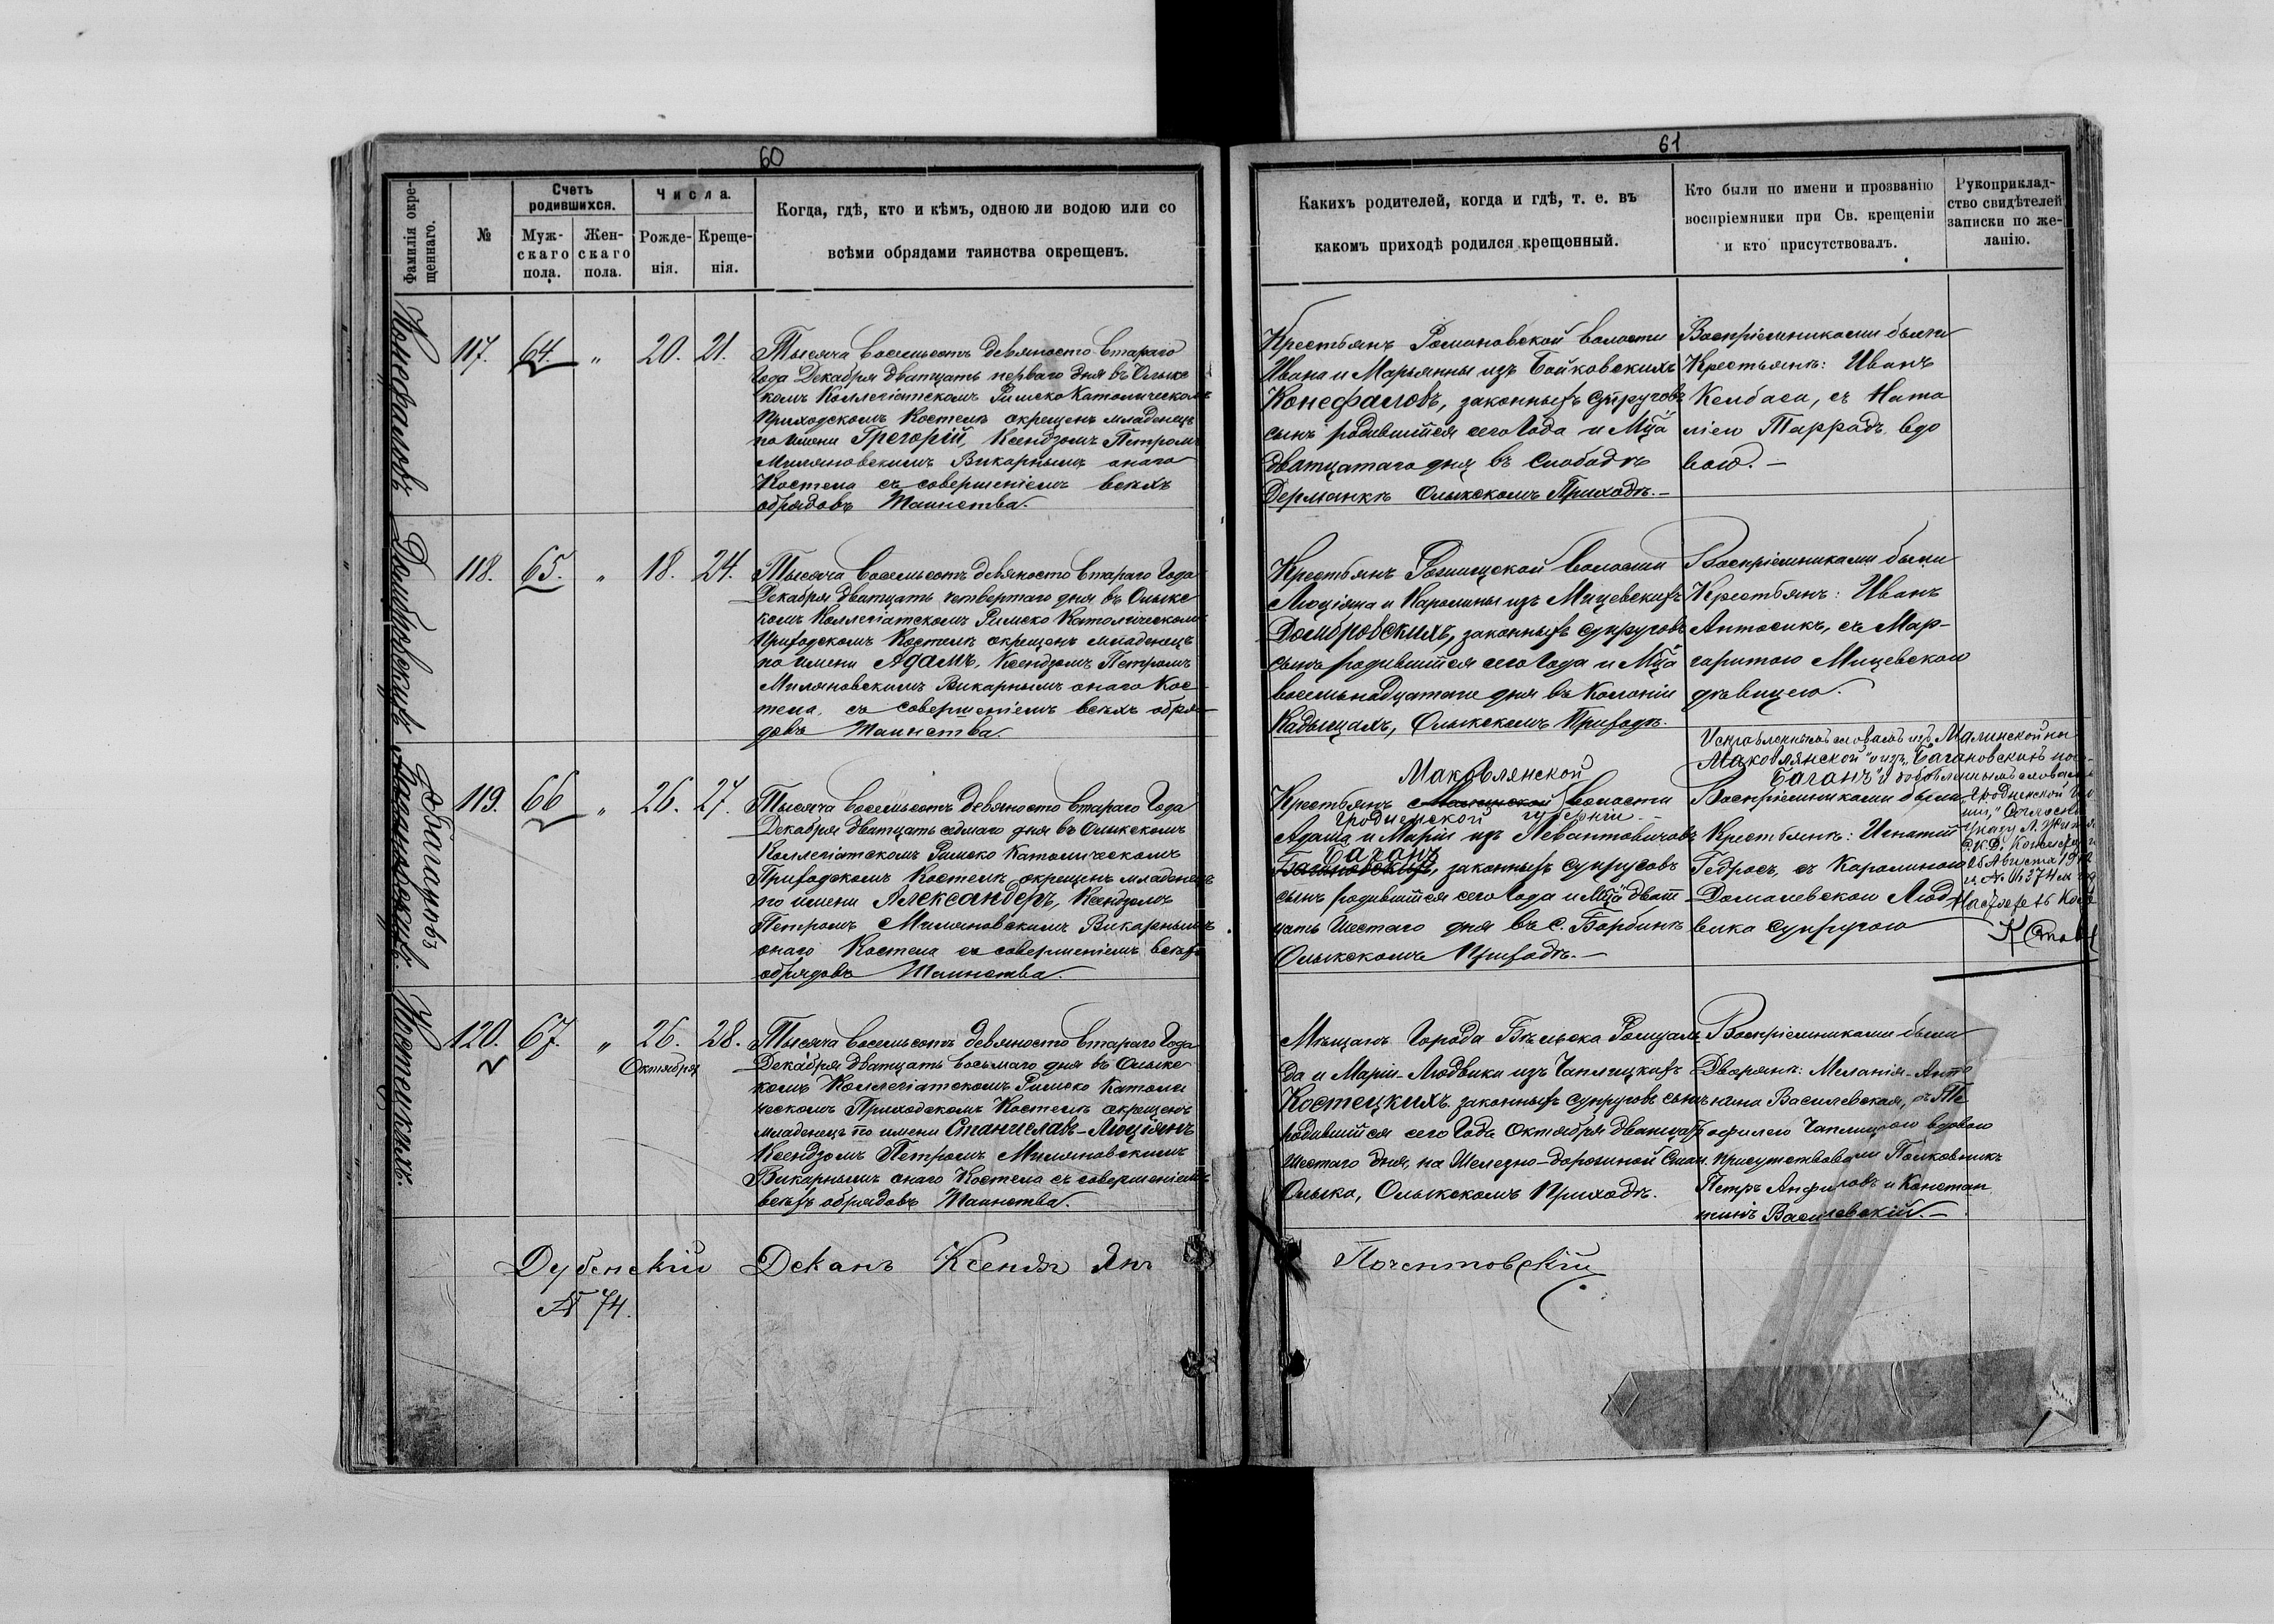 60
Фамилія окре-
щеннаго.
№
Счетъ
родившихся.
Муж-
скаго
пола.
Жен-
скаго
пола.
Числа.
Рожде-
нія.
Креще-
нія.
Когда, гдѣ, кто и кѣмъ, одною ли водою или со
всѣми обрядами таинства окрещенъ.
Конефаловъ
117. 64. " 20. 21.
Тысяча восемьсотъ девяносто втараго
Года Декабря дватцать перваго дня въ Олыкс
комъ Коллегіатскомъ Римско Католическомъ
Приходскомъ Костелѣ окрещенъ младенецъ
по имени Грегорій, Ксендзомъ Петромъ
Миляновскимъ Викарнымъ онаго
Костела съ совершеніемъ всѣхъ
обрядовъ Таинства.
Домбровскихъ
118. 65. " 18. 24.
Тысяча восемьсотъ девяносто втараго Года
Декабря дватцать четвертаго дня въ Олыкс
комъ Коллегіатскомъ Римско Католическомъ
Приходскомъ Костелѣ окрещенъ младенецъ
по имени Адамъ, Ксендзомъ Петромъ
Миляновскимъ Викарнымъ онаго Кос
тела, съ совершеніемъ всѣхъ обря-
довъ Таинства.
Багановскихъ
Баганъ
119. 66 " 26. 27.
Тысяча восемьсотъ девяносто втараго Года
Декабря дватцать седмаго дня въ Олыкскомъ
Коллегіатскомъ Римско Католическомъ
Приходскомъ Костелѣ окрещенъ младенецъ
по имени Александеръ, Ксендзомъ
Петромъ Миляновскимъ Викарнымъ
онаго Костела съ совершеніемъ всѣхъ
обрядовъ Таинства.
Костецкихъ.
120. 67. " 26. 28.
Октября
Тысяча восемьсотъ девяносто втараго Года
Декабря дватцать восьмаго дня въ Олыкс
комъ Коллегіатскомъ Римско Католи
ческомъ Приходскомъ Костелѣ окрещенъ
младенецъ по имени Станиславъ-Люціянъ
Ксендзомъ Петромъ Миляновскимъ
Викарнымъ онаго Костела съ совершеніемъ
всѣхъ обрядовъ Таинства.
Дубенскій Деканъ Ксендзъ Янъ
№ 74.
61
Какихъ родителей, когда и гдѣ, т. е. въ
какомъ приходѣ родился крещенный.
Кто были по имени и прозванію
воспріемники при Св. крещеніи
и кто присутствовалъ.
Рукоприклад-
ство свидѣтелей
записки по же-
ланію.
Крестьянъ Романовской волости
Ивана и Марьянны изъ Бойковскихъ
Конефаловъ, законныхъ супруговъ
сынъ родившійся сего Года и Мца
дватцатаго дня въ Слободѣ
Дерманкѣ Олыкскомъ Приходѣ.-
Воспріемниками были
Крестьянѣ: Иванъ
Келбаса, съ Ната
ліею Таррадъ, вдо
вою.-
Крестьянъ Рожищской волости
Люціяна и Каролины изъ Мицевскихъ
Домбровскихъ, законныхъ супруговъ
сынъ родившійся сего Года и Мца
восемьнадцатаго дня въ Колоніи
Кадыщахъ, Олыкскомъ Приходѣ.
Воспріемниками были
Крестьянѣ: Иванъ
Антосикъ, съ Мар-
гаритою Мицевскою
дѣвицею.
Маковлянской
Крестьянъ волости
Гродненской губерніи.-
Адама и Маріи изъ Левантовичовъ
Баганъ
Багановскихъ, законныхъ супруговъ
сынъ родившійся сего Года и Мца дват
цать шестаго дня въ с. Борбинѣ
Олыкскомъ Приходѣ.-
Исправленнымъ словамъ изъ Малинской на
Маковлянской" и изъ "Багановскихъ на
Баганъ" и добавленнымъ словамъ
"Гродненской
Воспріемниками были
Крестьянѣ: Игнатій
Гедросъ, съ Каролиною
Домалевскою Люд-
вика супругою
Указу Л. Житом.
Р. К. Д.
25 Августа
Мѣщанъ Города Бѣльска Ромуаль
да и Маріи-Людвики изъ Чаплицкихъ
Костецкихъ законныхъ супруговъ сынъ
родившійся сего Года Октября дватцать
шестаго дня, на Железно-дорожной Стан.
Олыка, Олыкскомъ Приходѣ.
Воспріемниками были
Дворянѣ: Меланія-Анто
нина Василевская, съ Те
офилею Чаплицкою вдовою
присутствовали Полковникъ
Петръ Анфиловъ и Констан
тинъ Василевскій.-
Почентовскій